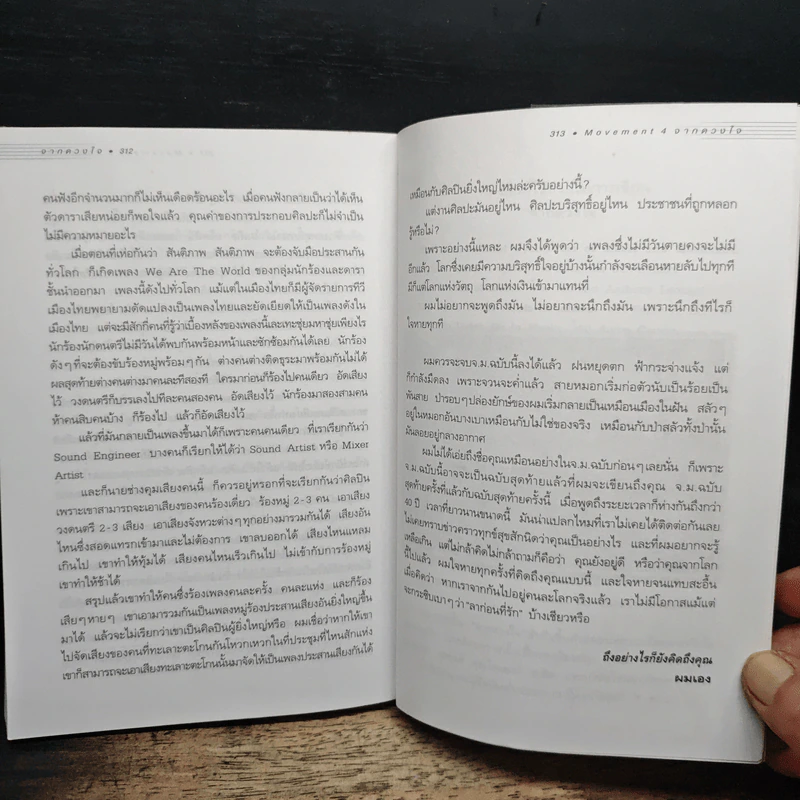 จากดวงใจ • 312
คนฟังอีกจำนวนมากก็ไม่เห็นเดือดร้อนอะไร เมื่อคนฟังกลายเป็นว่าได้เห็น
ตัวดาราเสียหน่อยก็พอใจแล้ว คุณค่าของการประกอบศิลปะก็ไม่จำเป็น
ไม่มีความหมายอะไร
เมื่อตอนที่เห่อกันว่า สันติภาพ สันติภาพ จะต้องจับมือประสานกัน
ทั่วโลก ก็เกิดเพลง We Are The World ของกลุ่มนักร้องและดารา
ชั้นนำออกมา เพลงนี้ดังไปทั่วโลก แม้แต่ในเมืองไทยก็มีผู้จัดรายการทีวี
เมืองไทยพยายามดัดแปลงเป็นเพลงไทยและยัดเยียดให้เป็นเพลงดังใน
เมืองไทย แต่จะมีสักกี่คนที่รู้ว่าเบื้องหลังของเพลงนี้และเทะซุ่ยมหาซุ่ยเพียงไร
นักร้องนักดนตรีไม่มีวันได้พบกันพร้อมหน้าและซักซ้อมกันได้เลย นักร้อง
ดังๆที่จะต้องขับร้องหมู่พร้อมๆกัน ต่างคนต่างติดธุระมาพร้อมกันไม่ได้
ผลสุดท้ายต่างคนต่างมาคนละทีสองที ใครมาก่อนก็ร้องไปคนเดียว อัดเสียง
ไว้ วงดนตรีก็บรรเลงไปทีละคนสองคน อัดเสียงไว้ นักร้องมาสองสามคน
ห้าคนสิบคนบ้าง ก็ร้องไป แล้วก็อัดเสียงไว้
แล้วที่มันกลายเป็นเพลงขึ้นมาได้ก็เพราะคนคนเดียว ที่เราเรียกกันว่า
Sound Engineer บางคนก็เรียกให้ได้ว่า Sound Artist หรือ Mixer
Artist
และก็นายช่างคุมเสียงคนนี้ ก็ควรอยู่หรอกที่จะเรียกกันว่าศิลปิน
เพราะเขาสามารถจะเอาเสียงของคนร้องเดี่ยว ร้องหมู่ 2-3 คน เอาเสียง
วงดนตรี 2-3 เสียง เอาเสียงจังหวะต่างๆทุกอย่างมารวมกันได้ เสียงอัน
ไหนซึ่งสอดแทรกเข้ามาและไม่ต้องการ เขาลบออกได้ เสียงไหนแหลม
เกินไป เขาทำให้ทุ้มได้ เสียงคนไหนเร็วเกินไป ไม่เข้ากับการร้องหมู่
เขาทำให้ช้าได้
สรุปแล้วเขาทำให้คนซึ่งร้องเพลงคนละครั้ง คนละแห่ง และก็ร้อง
เสียๆหายๆ เขาเอามารวมกันเป็นเพลงหมู่ร้องประสานเสียงอันยิ่งใหญ่ขึ้น
มาได้ แล้วจะไม่เรียกว่าเขาเป็นศิลปินผู้ยิ่งใหญ่หรือ ผมเชื่อว่าหากให้เขา
ไปจัดเสียงของคนที่ทะเลาะตะโกนกันโหวกเหวกในที่ประชุมที่ไหนสักแห่ง
เขาก็สามารถจะเอาเสียงทะเลาะตะโกนนั้นมาจัดให้เป็นเพลงประสานเสียงกันได้
313 • Movement 4 จากดวงใจ
เหมือนกับศิลปินยิ่งใหญ่ไหมล่ะครับอย่างนี้?
แต่งานศิลปะมันอยู่ไหน ศิลปะบริสุทธิ์อยู่ไหน ประชาชนที่ถูกหลอก
รู้หรือไม่?
เพราะอย่างนี้แหละ ผมจึงได้พูดว่า เพลงซึ่งไม่มีวันตายคงจะไม่มี
อีกแล้ว โลกซึ่งเคยมีความบริสุทธิ์ใจอยู่บ้างนั้นกำลังจะเลือนหายลับไปทุกที
มีก็แต่โลกแห่งวัตถุ โลกแห่งเงินเข้ามาแทนที่
ผมไม่อยากจะพูดถึงมัน ไม่อยากจะนึกถึงมัน เพราะนึกถึงทีไรก็
ใจหายทุกที
ผมควรจะจบจ.ม.ฉบับนี้ลงได้แล้ว ฝนหยุดตก ฟ้ากระจ่างแจ้ง แต่
ก็กำลังมืดลง เพราะจวนจะค่ำแล้ว สายหมอกเริ่มก่อตัวนับเป็นร้อยเป็น
พันสาย ป่ารอบๆปล่องยักษ์ของผมเริ่มกลายเป็นเหมือนเมืองในฝัน สลัวๆ
อยู่ในหมอกอันบางเบาเหมือนกับไม่ใช่ของจริง เหมือนกับป่าสลัวทั้งป่านั้น
มันลอยอยู่กลางอากาศ
ผมไม่ได้เอ่ยถึงชื่อคุณเหมือนอย่างในจ.ม.ฉบับก่อนๆเลยนั้น ก็เพราะ
จ.ม.ฉบับนี้อาจจะเป็นฉบับสุดท้ายแล้วที่ผมจะเขียนถึงคุณ จ.ม.ฉบับ
สุดท้ายครั้งที่แล้วกับฉบับสุดท้ายครั้งนี้ เมื่อพูดถึงระยะเวลาก็ห่างกันถึงกว่า
40 ปี เวลาที่ยาวนานขนาดนี้ มันน่าแปลกไหมที่เราไม่เคยได้ติดต่อกันเลย
ไม่เคยทราบข่าวคราวทุกข์สุขสักนิดว่าคุณเป็นอย่างไร และที่ผมอยากจะรู้
เหลือเกิน แต่ไม่กล้าคิดไม่กล้าถามก็คือว่า คุณยังอยู่ดี หรือว่าคุณจากโลก
นี้ไปแล้ว ผมใจหายทุกครั้งที่คิดถึงคุณแบบนี้ และใจหายจนแทบสะอื้น
เมื่อคิดว่า หากเราจากกันไปอยู่คนละโลกจริงแล้ว เราไม่มีโอกาสแม้แต่
จะกระซิบเบาๆว่า “ลาก่อนที่รัก” บ้างเชียวหรือ
ถึงอย่างไรก็ยังคิดถึงคุณ
ผมเอง